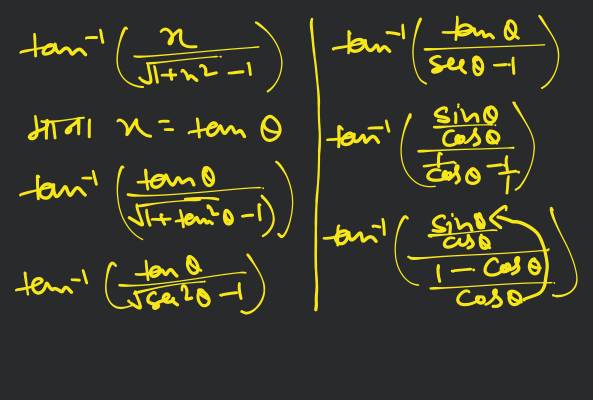 tan⁻¹ (x / (√1+x² - 1))
माना x = tan θ
tan⁻¹ (tan θ / (√1+tan²θ - 1))
tan⁻¹ (tan θ / (√sec²θ - 1))
tan⁻¹ (tan θ / (sec θ - 1))
tan⁻¹ ((sin θ / cos θ) / (1/cos θ - 1/1))
tan⁻¹ ((sin θ / cos θ) / ((1 - cos θ) / cos θ))